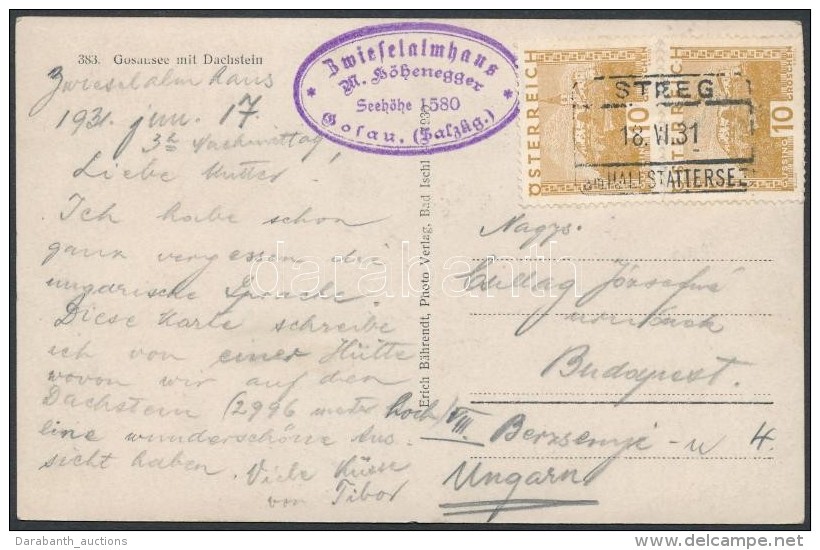 383. Gosausee mit Dachstein
Zwieselalmhaus
M. Höhenegger
Seehöhe 1580
Gosau, (Salzkg.)
ÖSTERREICH
10
GROSCHEN
ÖSTERREICH
10
GROSCHEN
STEEG
18.VI.31
am HALLSTÄTTERSEE
Zwieselalmhaus
1931. jun. 17.
3h Nachmittag!
Liebe Mutter!
Ich habe schon
ganz vergessen die
ungarische Sprache.
Diese Karte schreibe
ich von einer Hütte
wovon wir auf den
Dachstein (2996 meter hoch)
eine wunderschöne Aus-
sicht haben. Viele Küsse
von Tibor
Erich Bährendt, Photo Verlag, Bad Ischl
Nagys.
Csillag Józsefné
úrnőnek
Budapest.
VIII. Berzsenyi-u 4.
Ungarn
darabanth
Darabanth_auctions